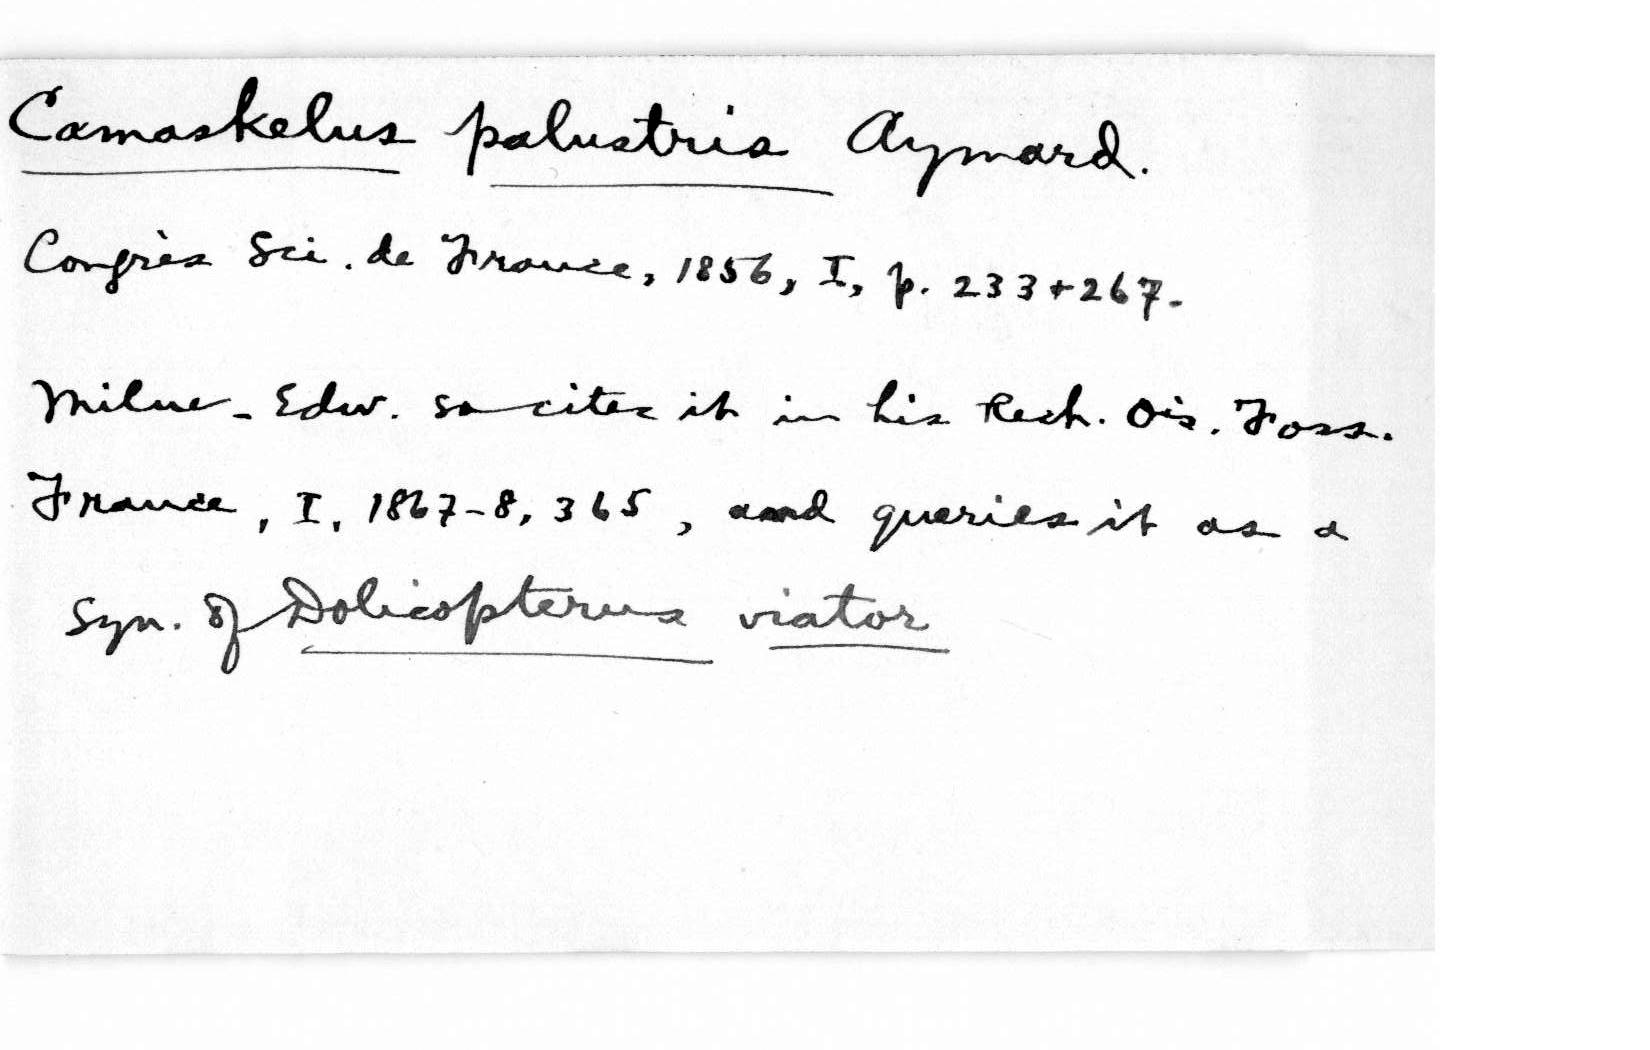 Camaskelus palustris Aymard.
Congrès Sci. de France, 1856, I, p. 233+267.
Milne-Edw. so cites it in his Rech. Ois. Foss.
France, I, 1867-8, 365, and queries it as a
syn. of Dolicopterus viator